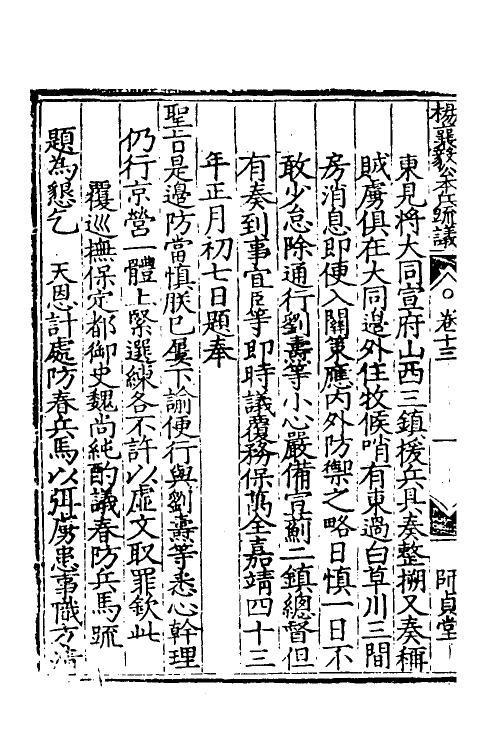 楊襄毅公本兵疏議 卷十三 一 師貞堂
東見將大同宣府山西三鎮援兵具奏整搠又奏稱
賊虜俱在大同邉外住牧候哨有東過白草川三間
房消息即便入關策應内外防禦之略日慎一日不
敢少怠除通行劉燾等小心嚴備宣薊二鎮總督但
有奏到事宜臣等即時議覆務保萬全嘉靖四十三
年正月初七日題奉
聖旨是邉防當慎朕已屢下諭便行與劉燾等悉心幹理
仍行京營一體上緊選練各不許以虛文取罪欽此
覆巡撫保定都御史魏尚純酌議春防兵馬疏
題為懇乞 天恩計處防春兵馬以弭虜患事職方清